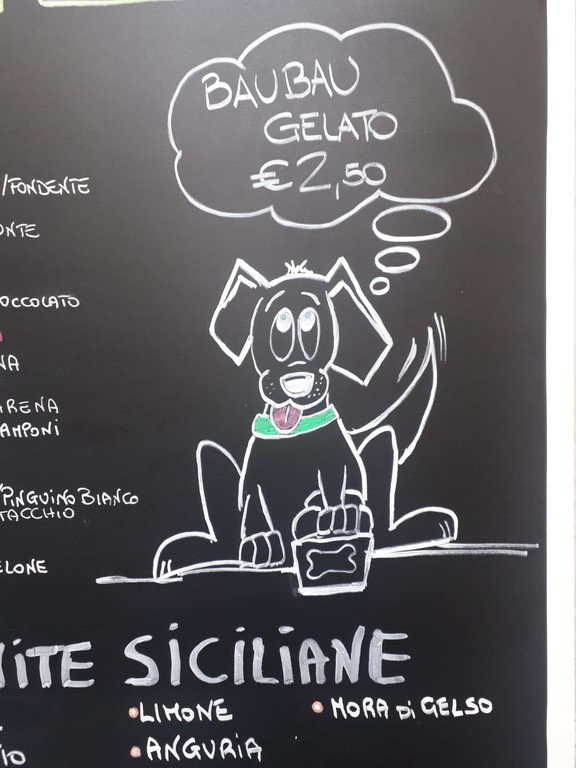 BAUBAU
GELATO
€ 2,50
/FONDENTE
ONTE
OCCOLATO
NA
ARENA
AMPONI
PINGUINO BIANCO
TACCHIO
ELONE
NITE SICILIANE
• LIMONE
• MORA Di GELSO
• ANGURIA